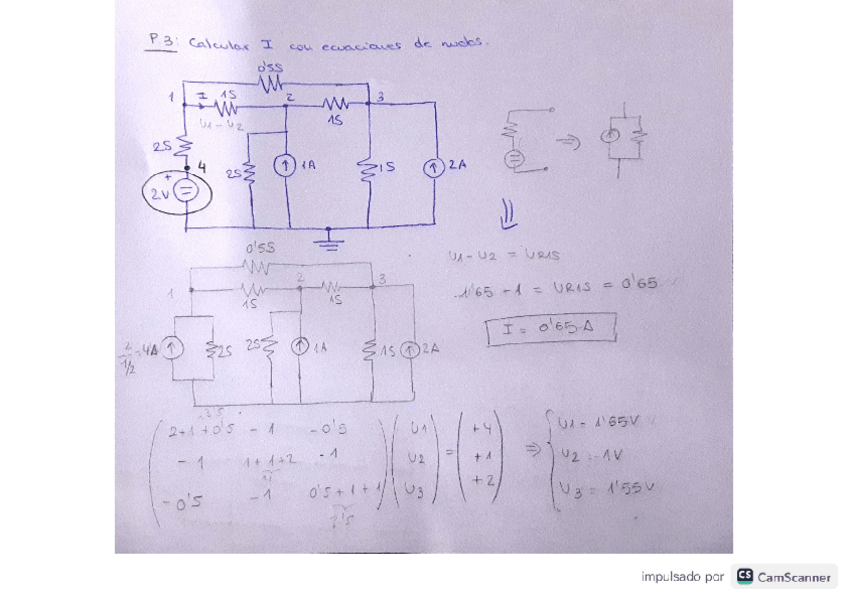 P.3: Calcular I con ecuaciones de nudos.
0'5S
1 I 1S 2 1S 3
U1 - U2
2S 4 2S 1A 1S 2A
+
2V
0'5S
1 1S 2 1S 3
2/1/2 = 4A 2S 2S 1A 1S 2A
U1 - U2 = UR1S
1'65 - 1 = UR1S = 0'65
I = 0'65 A
3'5
2+1+0'5 -1 -0'5 U1 +4 U1 = 1'65V
-1 1+1+2 -1 U2 = +1 ⇒ U2 = 1V
4
-0'5 -1 0'5+1+1 U3 +2 U3 = 1'55V
2'5
impulsado por CS CamScanner